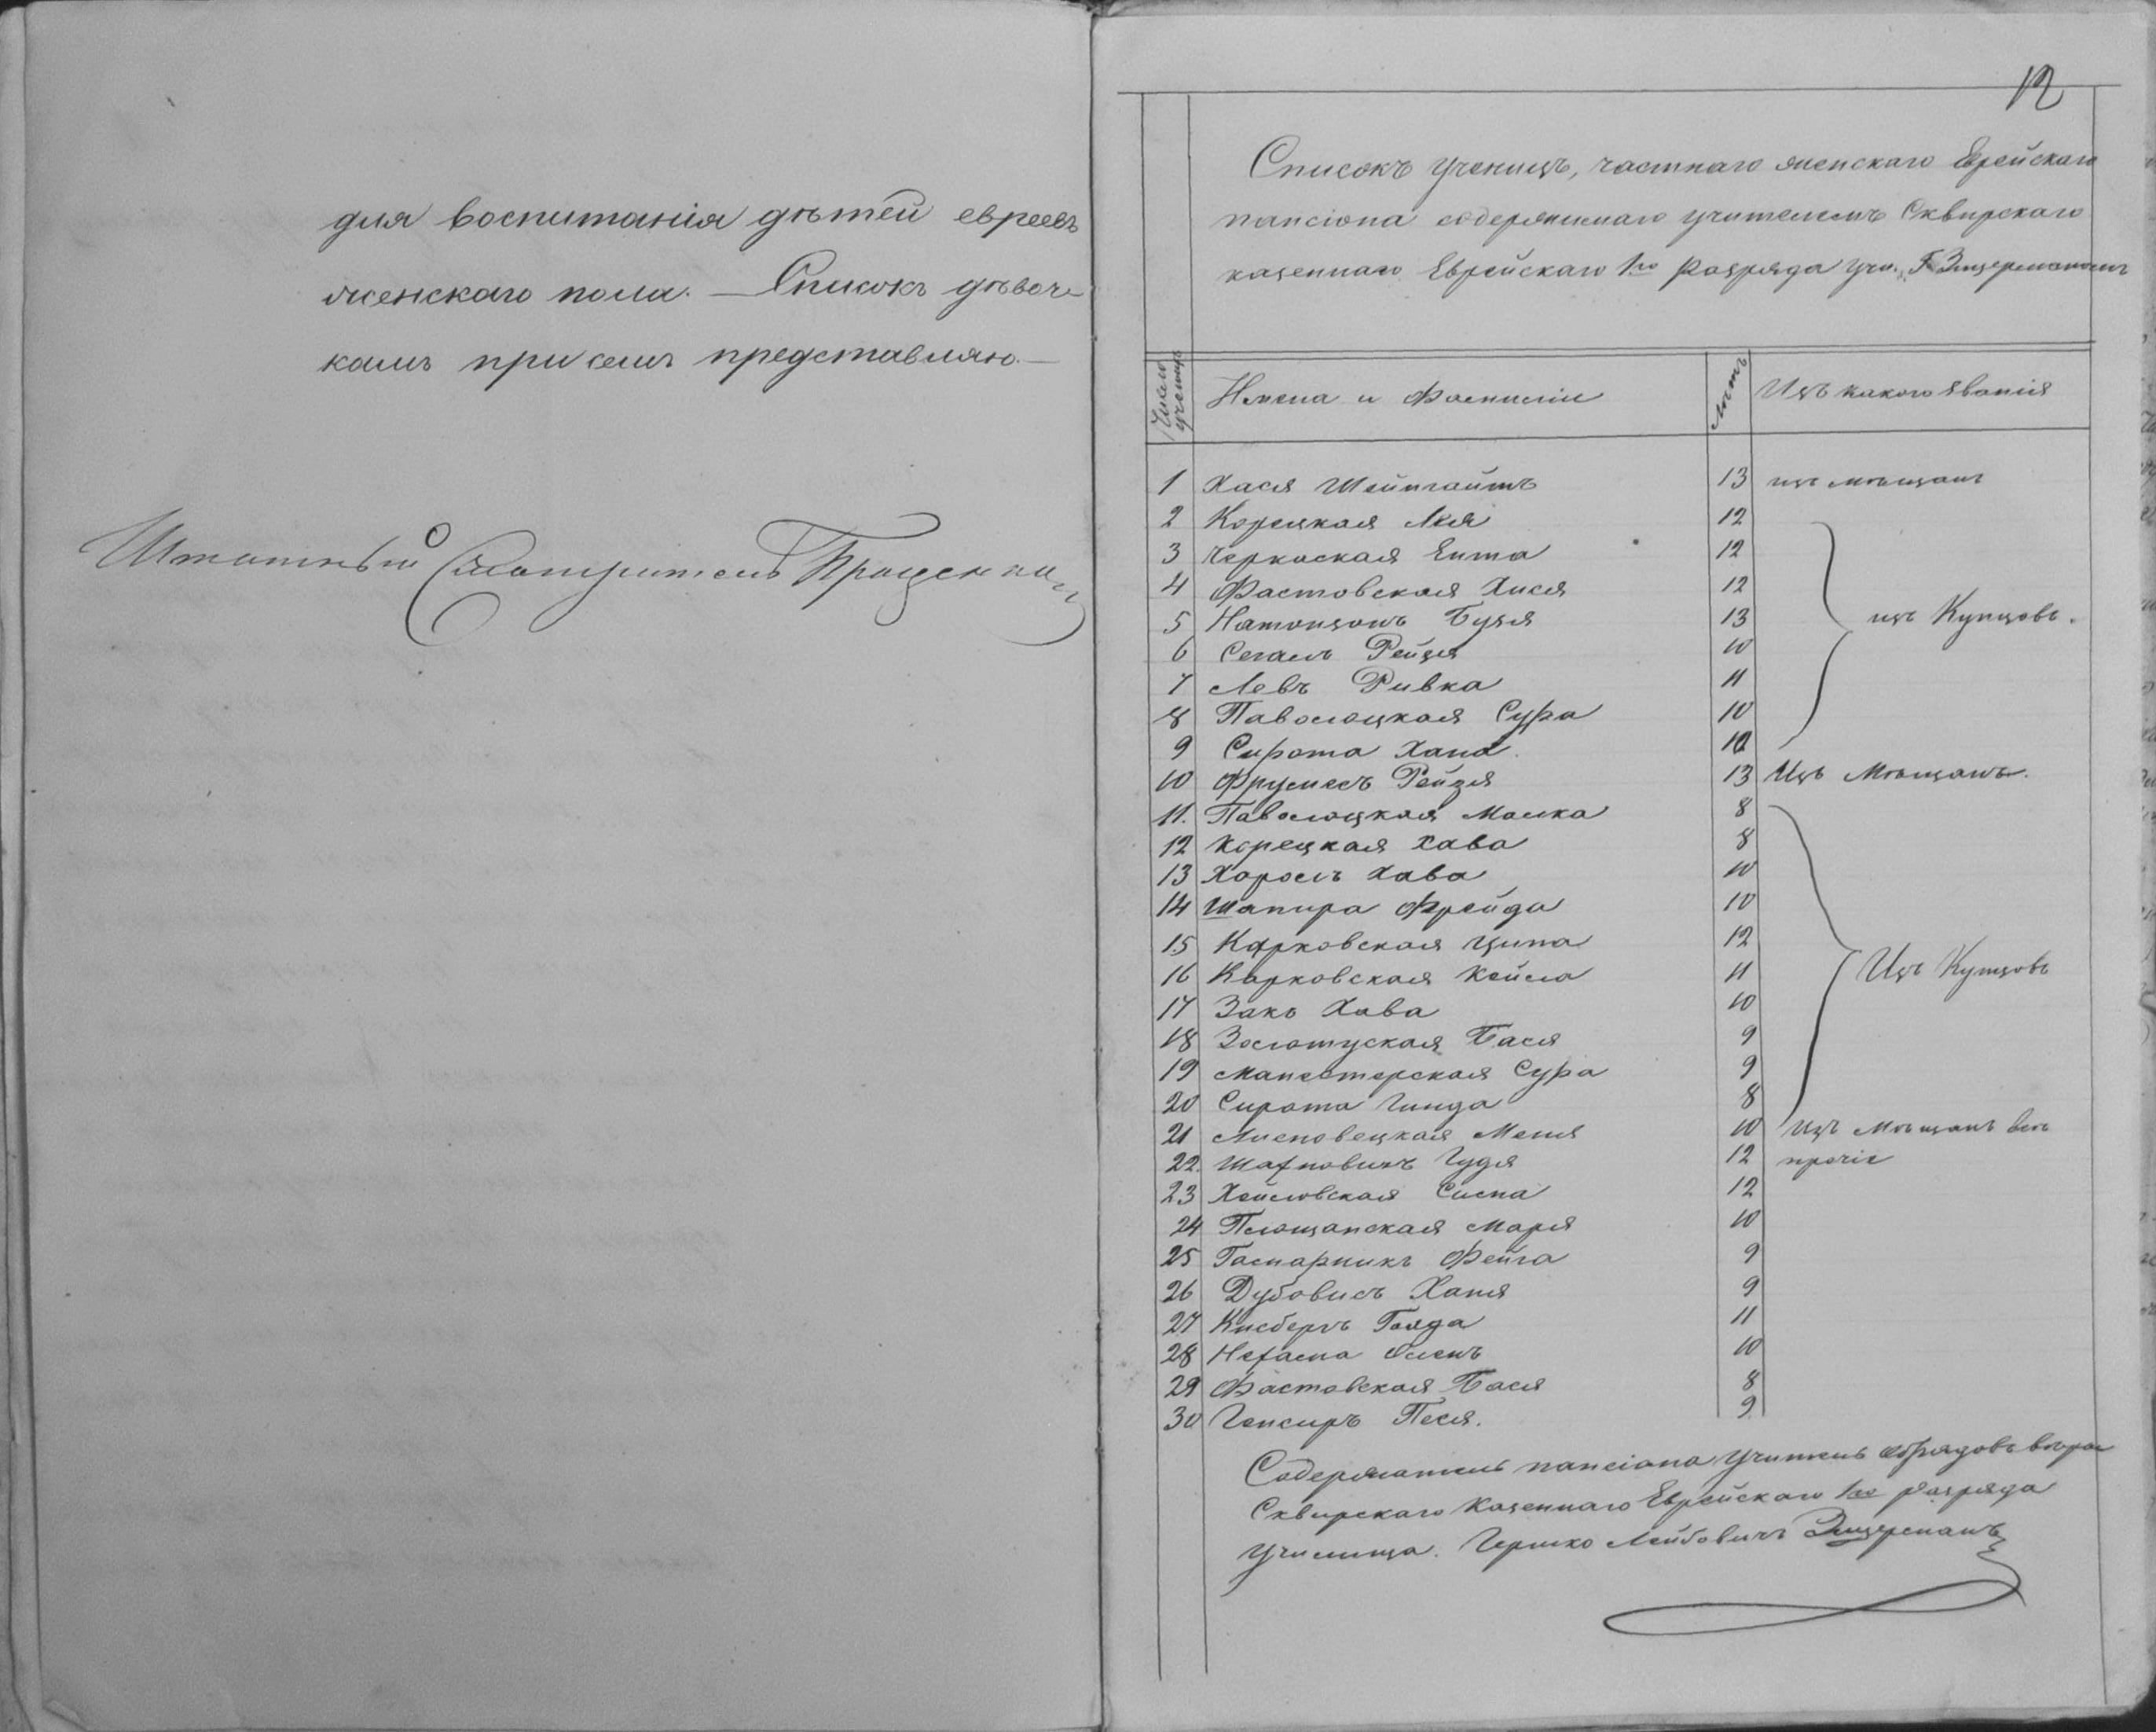 для воспитанія дѣтей евреевъ
женскаго пола. — Списокъ дѣвоч-
камъ при семъ представляю. —
Штатный Смотритель
12
Списокъ ученицъ, частнаго женскаго Еврейскаго
пансіона содержимаго учителемъ Сквирскаго
казеннаго Еврейскаго 1го разряда учи. Г. Зицерманомъ
Число ученицъ
Имена и Фамиліи
Лѣтъ
Изъ какого званія
1 Хася Шейнгайтъ 13 изъ мѣщанъ
2 Корецкая Лея 12
3 Черкаская Ента 12
4 Фастовская Хися 12
5 Натонзонъ Бузя 13 изъ Купцовъ.
6 Сегалъ Рейзя 10
7 Левъ Ривка 11
8 Паволоцкая Сура 10
9 Сирота Хана. 10
10 Фрумесъ Рейзя 13 Изъ Мѣщанъ.
11. Паволоцкая Малка 8
12 Корецкая Хава 8
13 Хоролъ Хава 10
14 Шапира Фрейда 10
15 Карковская Ципа 12
16 Карковская Кейла 11 Изъ Купцовъ
17 Закъ Хава 10
18 Золотуская Бася 9
19 Манестерская Сура 9
20 Сирота Гинда 8
21 Липовецкая Меня 10 Изъ Мѣщанъ всѣ
22. Шафновичъ Гудя 12 прочіе
23 Хейловская Сипа 12
24 Площанская Маря 10
25 Гаснарникъ Фейга 9
26 Дубовисъ Ханя 9
27 Кисбергъ Голда 11
28 Нехама 10
29 Фастовская Бася 8
30 Генсиръ Песя. 9
Содержатель пансіона Учитель обрядовъ вѣры
Сквирскаго Казеннаго Еврейскаго 1го разряда
Училища. Гершко Лейбовичъ Зицерманъ